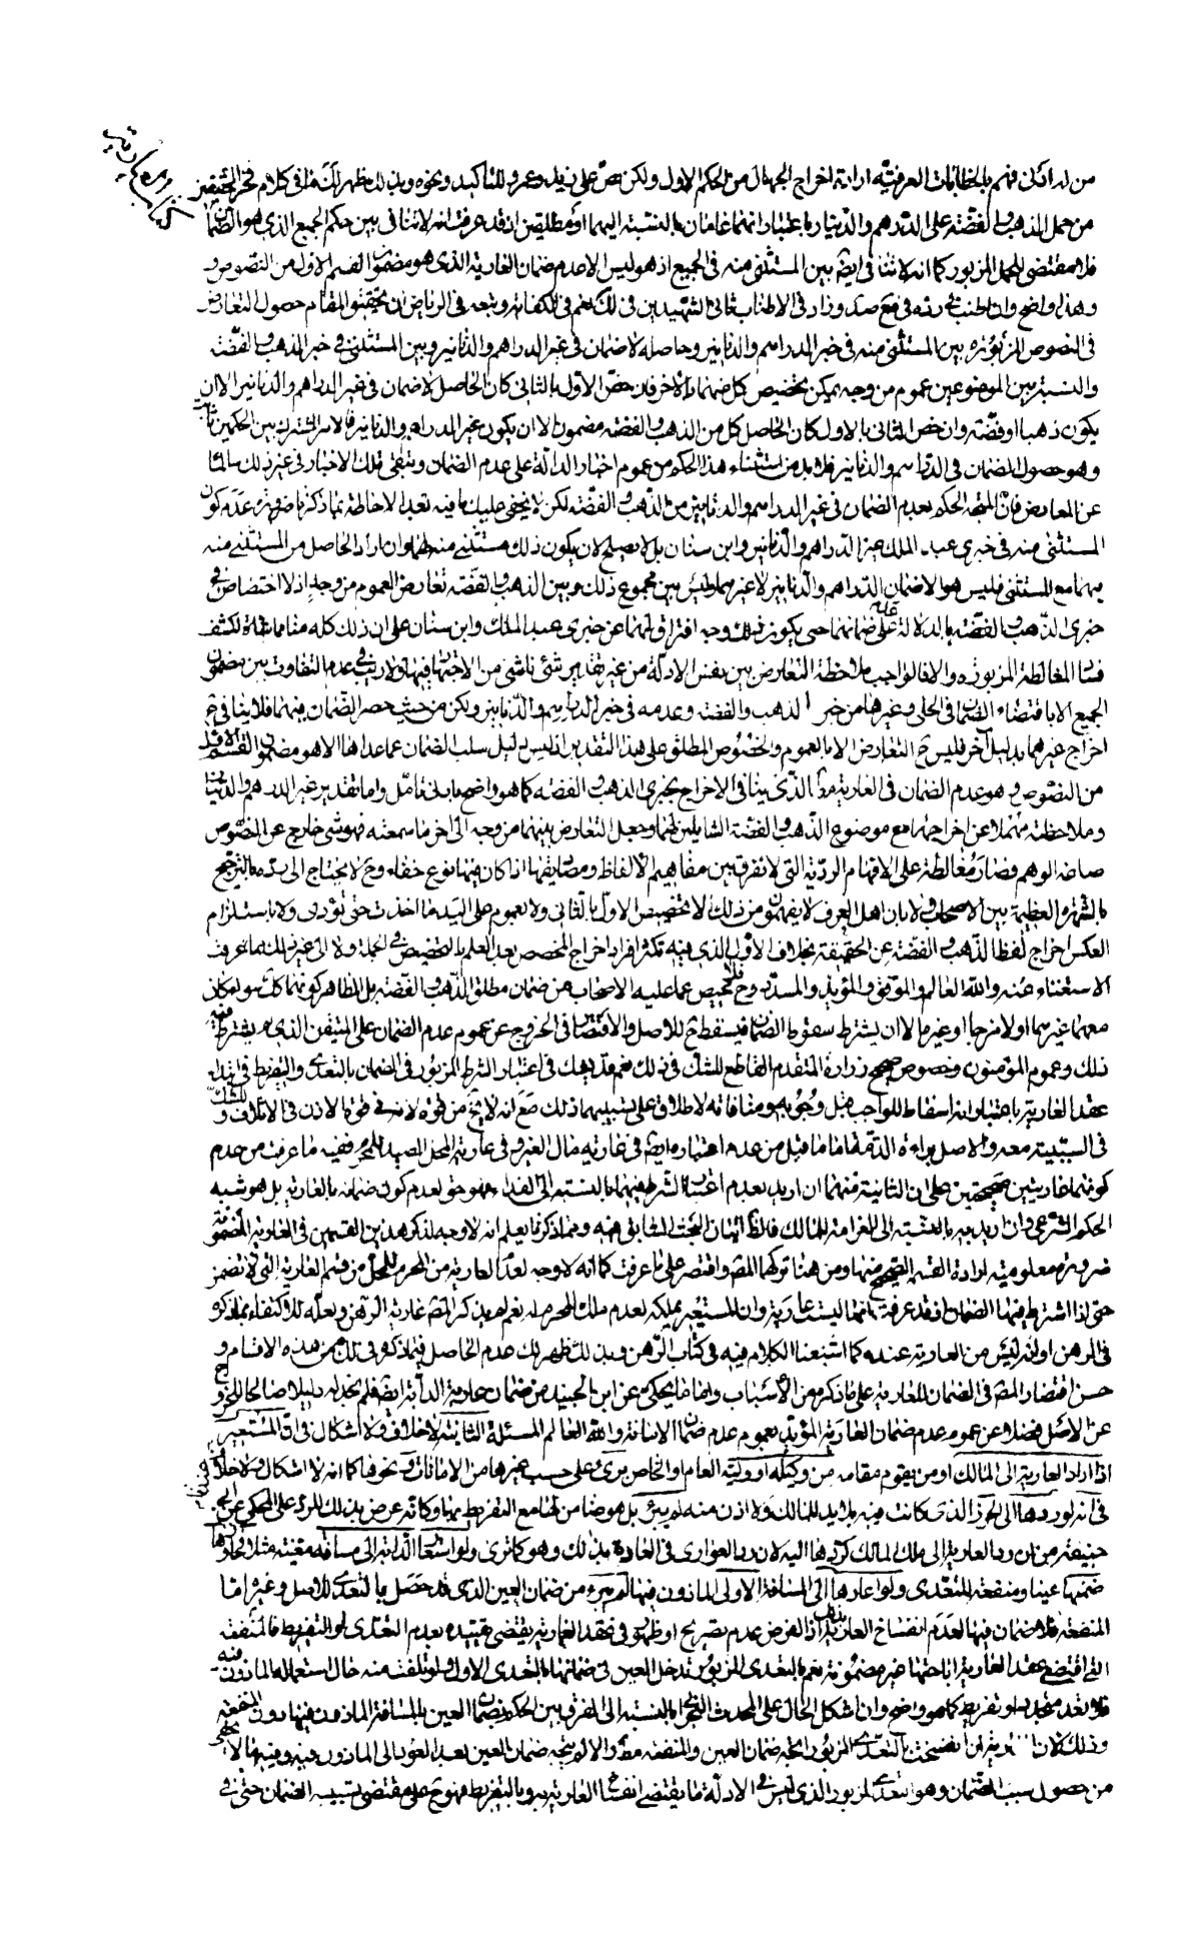 من له ادنى فهم بالخطابات العرفيّة ارادة اخراج الجهال من الحكم الاول ولكن نصّ على زيد وعمرو للتأكيد ونحوه وبذلك ظهر لك ما في كلام فخر المحققين
من حمل الذهب والفضّة على الدرهم والدينار باعتبار انهما عامان بالنسبة اليهما او مطلقين اذ قد عرفت انه لا تنافى بين حكم الجميع الذى هو الضمان
فلا مقتضى للحمل المزبور كما انه لا تنافى ايضا بين المستثنى منه فى الجميع اذ هو ليس الا عدم ضمان العارية الذى هو مضمون القسم الاول من النصوص
وهذا واضح وان اطنب فى رده فى مع صد وزاد فى الاطناب ثانى الشهيدين فى لك نعم فى الكفاية وتبعه فى الرياض ان تحقيق المقام حصول التعارض
فى النصوص المزبورة بين المستثنى منه فى خبر الدراهم والدنانير وحاصله لا ضمان فى غير الدراهم والدنانير وبين المستثنى فى خبر الذهب والفضّة
والنسبة بين الموضوعين عموم من وجه يمكن تخصيص كل منهما بالاخر فان خصّ الاول بالثانى كان الحاصل لا ضمان فى غير الدراهم والدنانير الا ان
يكون ذهبا او فضّة وان خص الثانى بالاول كان الحاصل كل من الذهب والفضة مضمون الا ان يكون غير الدراهم والدنانير فالامر المشترك بين الحكمين ثابت
وهو حصول الضمان فى الدراهم والدنانير فلا بد من استثناء هذا الحكم من عموم اخبار الدالة على عدم الضمان وتبقى تلك الاخبار فى غير ذلك سالما
عن المعارض فاذن المتجه الحكم بعدم الضمان فى غير الدراهم والدنانير من الذهب والفضّة لكن لا يخفى عليك ما فيه بعد الاحاطة بما ذكرنا ضرورة عدم كون
المستثنى منه فى خبرى عبد الملك غير الدراهم والدنانير وابن سنان بل لا يصلح لان يكون ذلك مستثنى منه لهما وان اراد الحاصل من المستثنى منه
بهما مع المستثنى فليس هو الا ضمان الدراهم والدنانير لا غيرهما وليس بين مجموع ذلك وبين الذهب والفضة تعارض العموم من وجه اذ لا اختصاص فى
خبرى الذهب والفضّة بالدلالة على ضمانهما حتى يكون ذلك وجه افتراقهما عن خبرى عبد الملك وابن سنان على ان ذلك كله منا مماشاة لكشف
فساد المغالطة المزبورة والا فالواجب ملاحظة التعارض بين نفس الادلة من غير تقدير شئ ناشئ من الاجتهاد فيها ولا ريب فى عدم التفاوت بين مضمون
الجميع الا باقتضاء الضمان فى الحلى وغيرها من خبر الذهب والفضة وعدمه فى خبر الدراهم والدنانير ولكن من حيث حصر الضمان فيهما فلا ينافى ح
اخراج غيرهما بدليل آخر فليس ح التعارض الا بالعموم والخصوص المطلق على هذا التقدير اذ ليس دليل سلب الضمان عما عداها الا هو مضمون القسم الاول
من النصوص وهو عدم الضمان فى العارية مط الذى ينافى الاخراج بخبرى الذهب والفضة كما هو واضح بادنى تأمّل واما تقدير غير الدرهم والدينار
وملاحظته مهملا عن اخراجهما مع موضوع الذهب والفضة الشاملين لهما وجعل التعارض بينهما من وجه الى آخر ما سمعته فهو شئ خارج عن النصوص
صاغه الوهم فصار مغالطة على الافهام الردية التى لا تفرق بين مفاهيم الالفاظ ومصاديقها اذا كان فيها نوع خفاء وح لا يحتاج الى رده بالترجيح
بالشهرة العظيمة بين الاصحاب ولا بان اهل العرف لا يفهمون من ذلك الا تخصيص الاول بالثانى ولا بعموم على اليد ما اخذت حتى تؤدى ولا باستلزام
العكس اخراج لفظ الذهب والفضة عن الحقيقة بخلاف الاول الذى فيه تكثر افراد اخراج المخصص بعد العلم بالتخصيص فى الجملة ولا الى غير ذلك مما عرفت
الاستغناء عنه والله العالم والموفق والمؤيد والمسدد وح فلا محيص عما عليه الاصحاب من ضمان مطلق الذهب والفضة بل الظاهر كونهما كك سواء كان
معهما غيرهما اولا مزجا او غيره الا ان يشترط سقوط الضمان فيسقط ح للاصل والاقتصار فى الخروج عن عموم عدم الضمان على المتيقن الذى لم يشترط فيه
ذلك وعموم المؤمنون وخصوص صحيح زرارة المتقدم القاطع للشك فى ذلك نعم قد يشك فى اعتبار الشرط المزبور فى الضمان بالتعدى والتفريط فى ابتداء
عقد العارية باعتبار انه اسقاط للواجب قبل وجوبه ومنافاته لاطلاق على سببيتهما ذلك مع انه لا يخ من قوة لانه فى قوة الاذن فى الاتلاف و للشك
فى السببية معه والاصل براءة الذمة اما ما قيل من عدم اعتباره ايضا فى عارية مال الغير فى عارية المحل الصيد للمحرم ففيه ما عرفت من عدم
كونهما عاريتين صحيحتين على ان الثانية منهما ان اريد بعدم اعتبار الشرط فيهما بالنسبة الى الفداء فهو حق لعدم كون ضمانه بالعارية بل هو شبه
الحكم الشرعى وان اريد به بالنسبة الى الغرامة للمالك فالظ اتيان البحث السابق فيه ومما ذكرنا يعلم انه لا وجه لذكر هذين القسمين فى العارية المضمونة
ضرورة معلومية ارادة القسم الصحيح منها ومن هنا تركهما المص واقتصر على ما عرفت كما انه لا وجه لعد العارية من المحرم للمحل من قسم العارية التى لا تضمن
حتى اذا اشترط فيها الضمان اذ قد عرفت انها ليست عارية وان المستعير يملكه لعدم ملك المحرم له نعم لم يذكر المص عارية الرهن ولعله للاكتفاء بما ذكره
فى الرهن او لانه ليس من العارية عنده كما اشبعنا الكلام فيه فى كتاب الرهن وبذلك ظهر لك عدم الحاصل فيما ذكره فى لك من هذه الاقسام و
حسن اقتصار المص فى الضمان للعارية على ما ذكره من الاسباب واما ما يحكى عن ابن الجنيد من ضمان عارية الدابة ايضا فلم نجد له دليلا صالحا للخروج
عن الاصل فضلا عن عموم عدم ضمان العارية المؤيد بعموم عدم ضمان الامانة والله العالم المسئلة الثانية لا خلاف ولا اشكال فى ان المستعير
اذا اراد العارية الى المالك او من يقوم مقامه من وكيله او وليه العام والخاص برئ على حسب غيرها من الامانات ونحوها كما انه لا اشكال ولا خلاف
فى انه لو ردها الى الحرز الذى كانت فيه بلا يد للمالك ولا اذن منه لم يبرئ بل هو ضامن لها مع التفريط بها وكانه عرض بذلك للرد على المحكى عن ابى
حنيفة من ان رد العارية الى ملك المالك كردها اليه لان رد العوارى فى العادة بذلك وهو كما ترى ولو استعار الدابة الى مسافة معينة مثلا فجاوزها
ضمنها عينا ومنفعة للتعدى ولو اعادها الى المسافة الاولى الماذون فيها لم يبرء من ضمان العين الذى قد حصل بالتعدى للاصل وغيره اما
المنفعة فلا ضمان فيها لعدم انفساخ العارية بذلك اذ الفرض عدم تصريح او ظهور فى عقد العارية يقتضى تقييده بعدم التعدى او التفريط فالمنفعة
التى اقتضى عقد العارية اباحتها غير مضمونة نعم بالتعدى المزبور تدخل العين فى ضمانها بالتعدى الاول ولو تلفت منه حال استعماله الماذون فيه
فلا تعد جديد او تفريط كما هو واضح وان اشكل الحال على المحدث البحرانى بالنسبة الى الفرق بين الحكم بضمان العين بالمسافة الماذون فيها دون المنفعة
وذلك لان العارية ان انفسخت بالتعدى المزبور اتجه ضمان العين والمنفعة مط والا لم يتجه ضمان العين بعد العود الى الماذون فيه وفيه ما لا يخفى
من حصول سبب الضمان وهو التعدى المزبور الذى ليس فى الادلة ما يقتضى انفساخ العارية به وبالتفريط فهو ح على مقتضى سببيته الضمان حتى فى